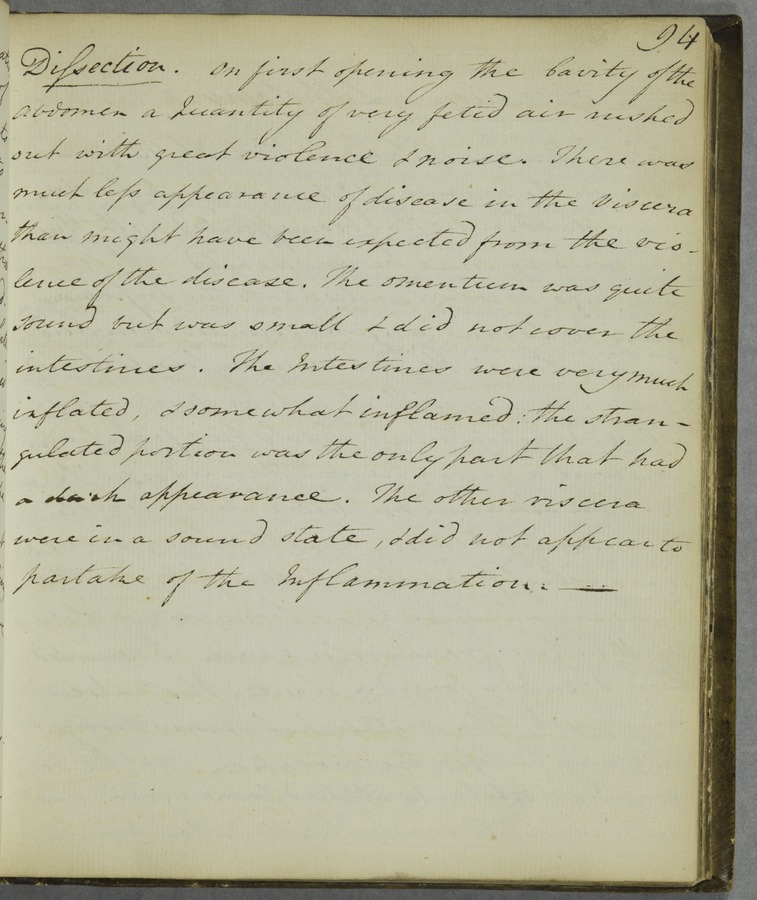 94
Dissection. On first opening the Cavity of the
abdomen a Quantity of very fetid air rushed
out with great violence & noise. There was
much less appearance of disease in the Viscera
than might have been expected from the vio-
lence of the disease. The omentum was quite
sound but was small & did not cover the
intestines. The Intestines were very much
inflated, & somewhat inflamed: the stran-
gulated portion was the only part that had
a dark appearance. The other viscera
were in a sound state, & did not appear to
partake of the Inflammation. —